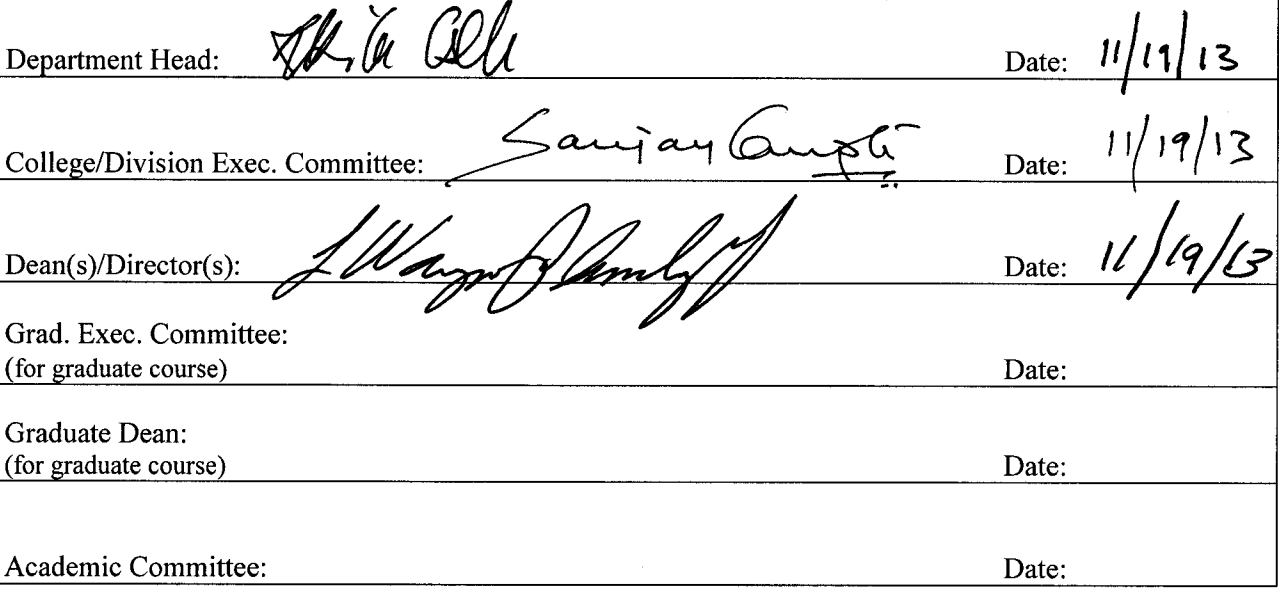 Department Head: Date: 11/19/13
College/Division Exec. Committee: Sanjay Gupta Date: 11/19/13
Dean(s)/Director(s): Date: 11/19/13
Grad. Exec. Committee:
(for graduate course) Date:
Graduate Dean:
(for graduate course) Date:
Academic Committee: Date: